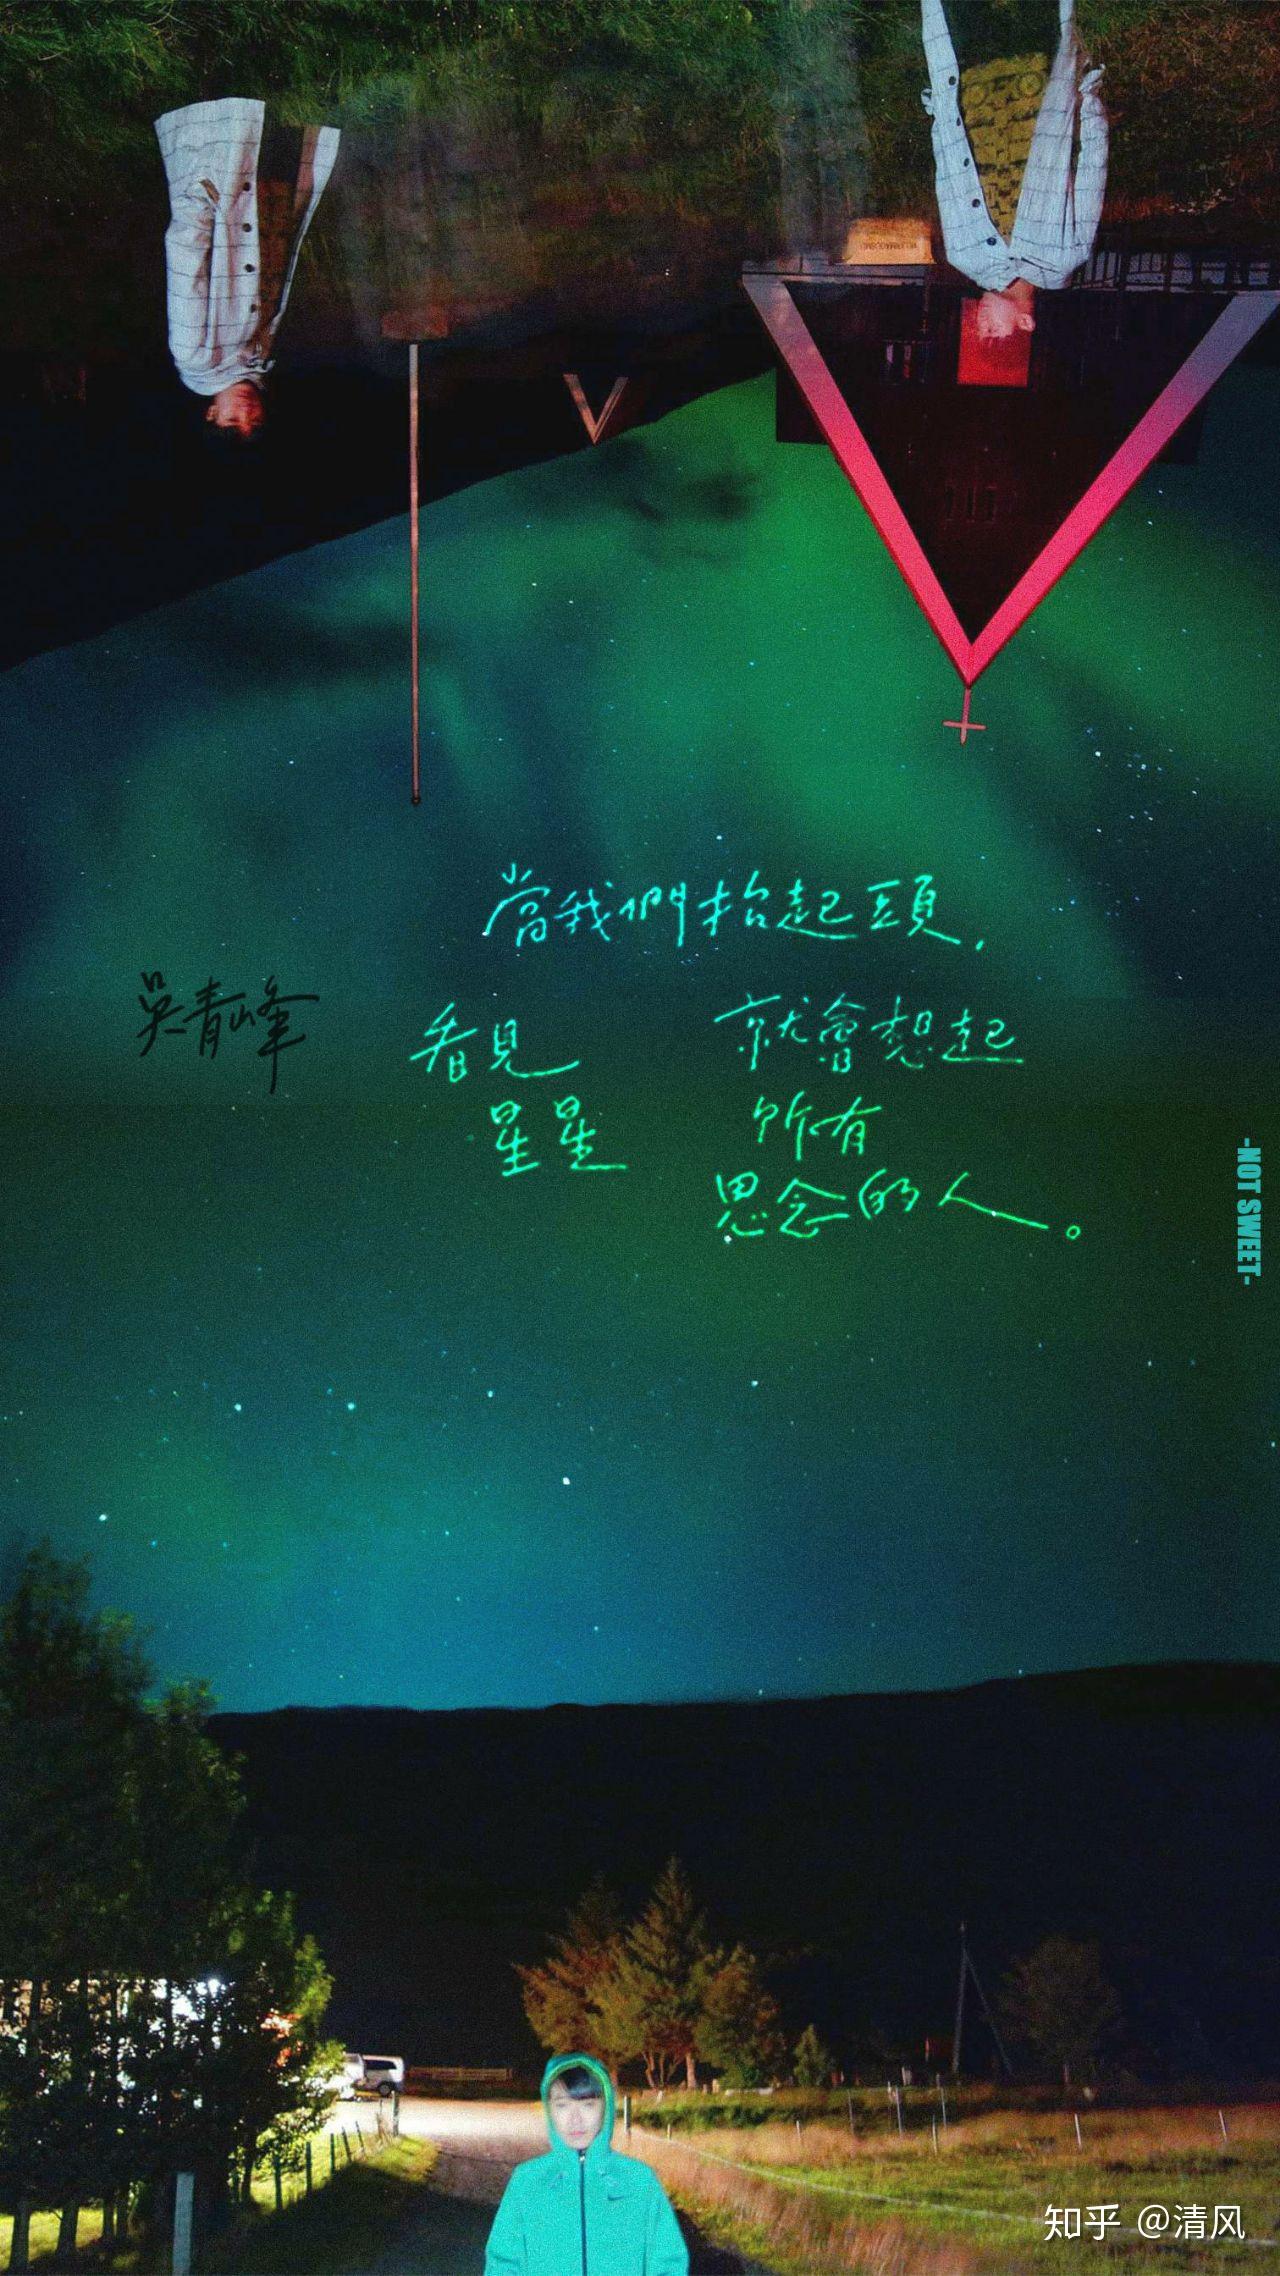 當我們抬起頭,
看見
星星
就會想起
所有
思念的人。
吳青峰
-NOT SWEET-
知乎 @清风